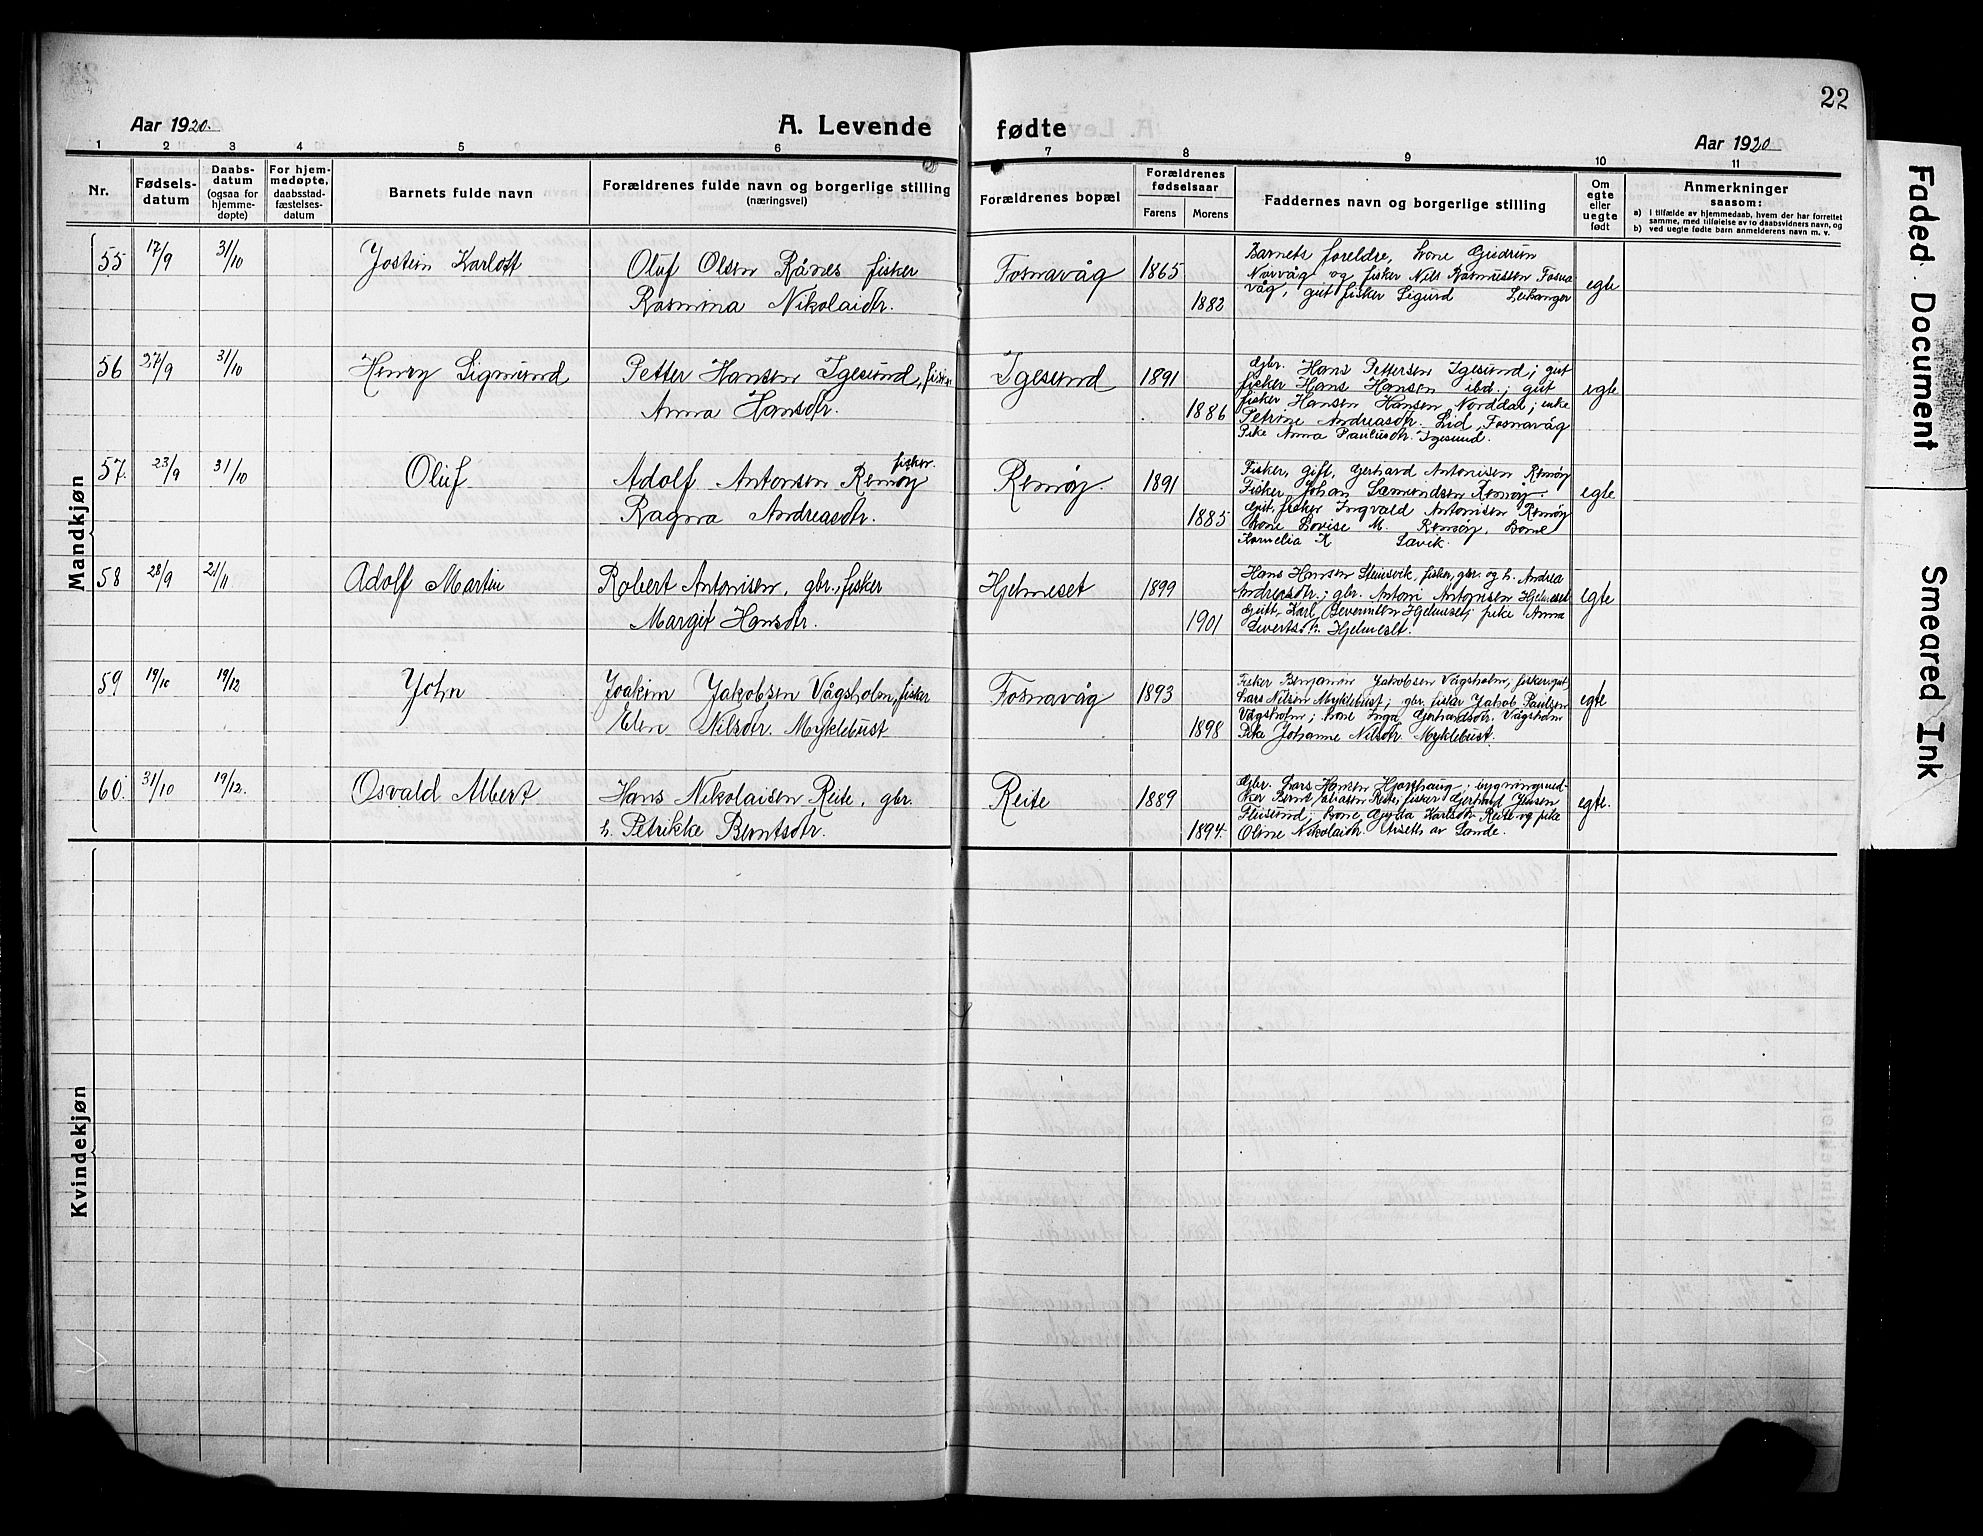 22
Aar 1920.
A. Levende fødte
Aar 1920
1 2 3 4 5 6 7 8 9 10 11
Nr.
Fødsels-
datum
Daabs-
datum
(ogsaa for
hjemme-
døpte)
For hjem-
medøpte,
daabsstad-
fæstelses-
datum
Barnets fulde navn
Forældrenes fulde navn og borgerlige stilling
(næringsvei)
Forældrenes bopæl
Forældrenes
fødselsaar
Farens Morens
Faddernes navn og borgerlige stilling
Om
egte
eller
uegte
født
Anmerkninger
saasom:
a) i tilfælde av hjemmedaab, hvem der har forrettet
samme, med tilføielse av to daabsvidners navn, og
b) ved uegte fødte barn anmelderens navn m. v.
Mandkjøn
55 17/9 31/10 Jostein Karloff
Oluf Olsen Rånes fisker
Rasmina Nikolaidtr.
Fosnavåg 1865
1882
Barnets foreldre, kone Gudrun
Nörvåg og fisker Nils Rasmussen Fosna
våg, gut fisker Sigurd Leikanger
egte
56 27/9 31/10 Henry Sigmund
Petter Hansen Igesund, fisker
Anna Hansdtr.
Igesund 1891
1886
Gbr. Hans Pettersen Igesund; gut
fisker Hans Hansen ibd.; gut
fisker Hansen Hansen Norddal; enke
Petrine Andreasdtr. Lid, Fosnavåg
Pike Anna Paulusdtr. Igesund.
egte
57. 23/9 31/10 Oluf
Adolf Antonsen Remøy fisker.
Ragna Andreasdtr.
Remøy. 1891
1885
Fisker, gift, Gerhard Antonisen Remøy
Fisker Johan Samundsen Remøy.
Gut, fisker Ingvald Antonisen Remøy
Kone Lovise M. Remøy, Kone
Kornelia K Sævik.
egte
58 28/9 21/11 Adolf Martin
Robert Antonisen, gbr., fisker
Margit Hansdtr.
Hjelmeset 1899
1901
Hans Hansen Steinsvik, fisker, gbr. og h. Andrea
Andreasdtr.; gbr. Antoni Antonisen Hjelmeset
Gutt, Karl Severinsen Hjelmeset; pike Anna
Sivertsd. Hjelmeset.
egte
59 19/10 19/12 John
Joakim Jakobsen Vågsholm, fisker
Elen Nilsdtr. Myklebust
Fosnavåg 1893
1898
Fisker Benjamin Jakobsen Vågsholm, fisker, gut,
Lars Nilsen Myklebust; gbr. fisker Jakob Paulsen
Vågsholm; kone Inga Gerhardsdtr. Vågsholm
Pike Johanne Nilsdtr. Myklebust.
egte
60. 31/10 19/12. Osvald Albert
Hans Nikolaisen Reite, gbr.
h. Petrikke Berntsdtr.
Reite 1889
1894.
Gbr. Lars Hansen Hjorthaug; bygningssned-
ker Bernt Reite, fisker Gerhard Jensen
Flusund; kone Gyda Karlsdtr. Reite og pike
Oline Nikolaidtr. Årseth av Sande.
egte.
Kvindekjøn
Faded Document
Smeared Ink